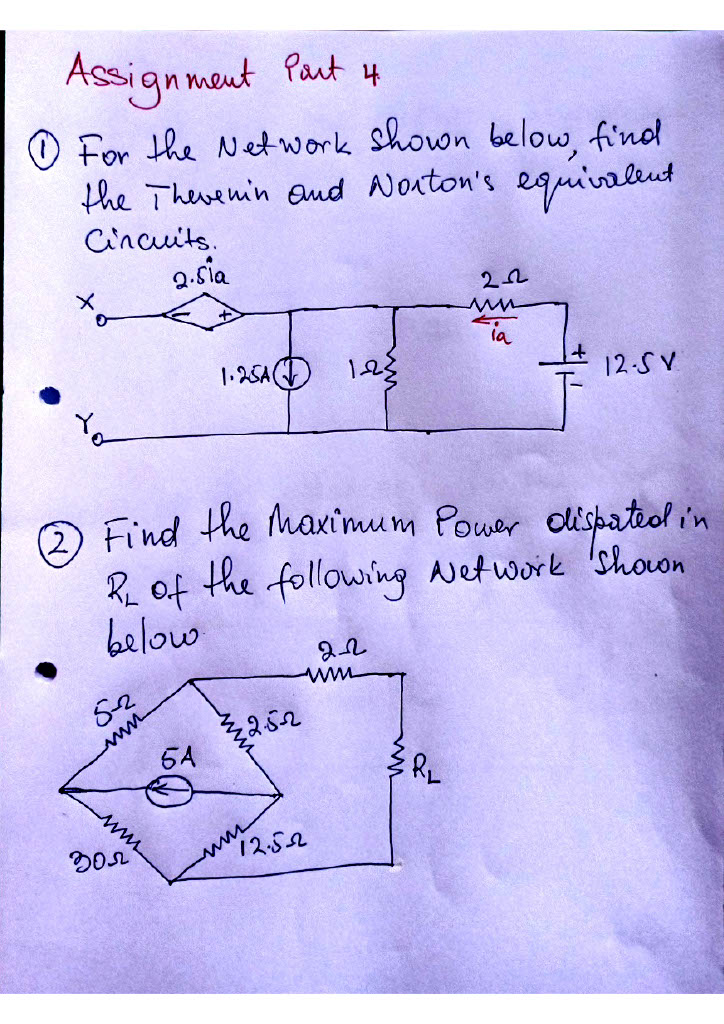 Assignment Part 4
① For the Network shown below, find
the Thevenin and Norton's equivalent
Circuits.
2.5ia
2Ω
X
- +
ia
1.25A
1Ω
+
-
12.5V
Y
② Find the Maximum Power dispated in
RL of the following Network shown
below
2Ω
5Ω
2.5Ω
5A
RL
30Ω
12.5Ω